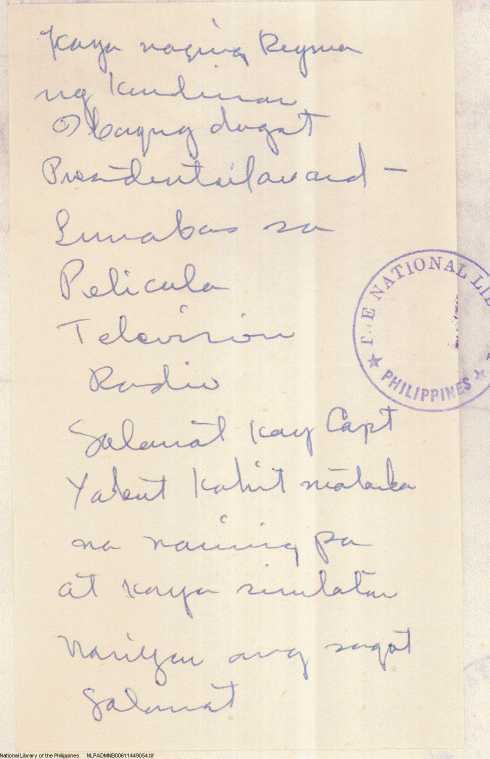 Kaya naging Reyna
ng Kundiman
O bagay dagat
Presidential award -
Lumabas sa
Pelicula
Television
Radio
Salamat kay Capt
Yabut Kahit matanda
na naging pa
at kaya sinulatan
Nariyan ang sagot
Salamat
THE NATIONAL LIB
PHILIPPINES
National Library of the Philippines NLPADMNB00611449054.tif